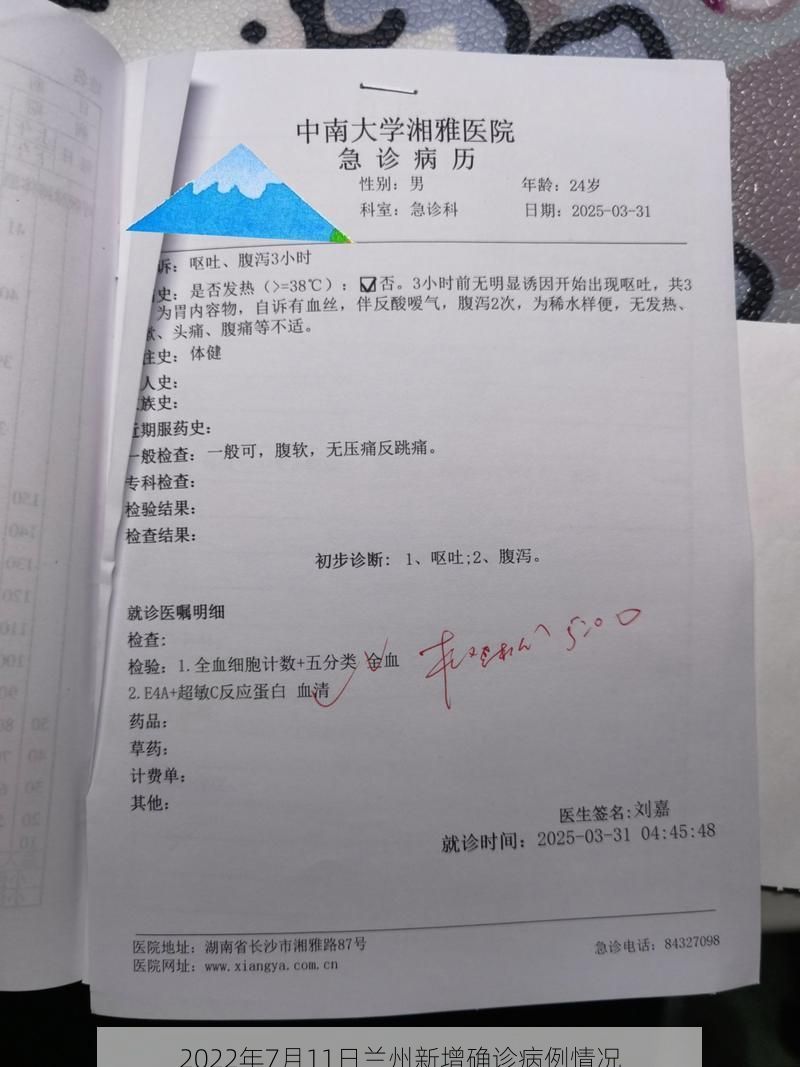 中南大学湘雅医院
急诊病历
性别: 男 年龄: 24岁
科室: 急诊科 日期: 2025-03-31
诉: 呕吐、腹泻3小时
史: 是否发热（>=38℃）: ☑否。3小时前无明显诱因开始出现呕吐，共3
为胃内容物，自诉有血丝，伴反酸嗳气，腹泻2次，为稀水样便，无发热、
、头痛、腹痛等不适。
史: 体健
人史:
族史:
近期服药史:
一般检查: 一般可，腹软，无压痛反跳痛。
专科检查:
检验结果:
检查结果:
初步诊断: 1、呕吐;2、腹泻。
就诊医嘱明细
检查:
检验: 1.全血细胞计数+五分类 全血
2.E4A+超敏C反应蛋白 血清
5:00
药品:
草药:
计费单:
其他:
医生签名:刘嘉
就诊时间: 2025-03-31 04:45:48
医院地址: 湖南省长沙市湘雅路87号 急诊电话: 84327098
医院网址: www.xiangya.com.cn
2022年7月11日兰州新增确诊病例情况